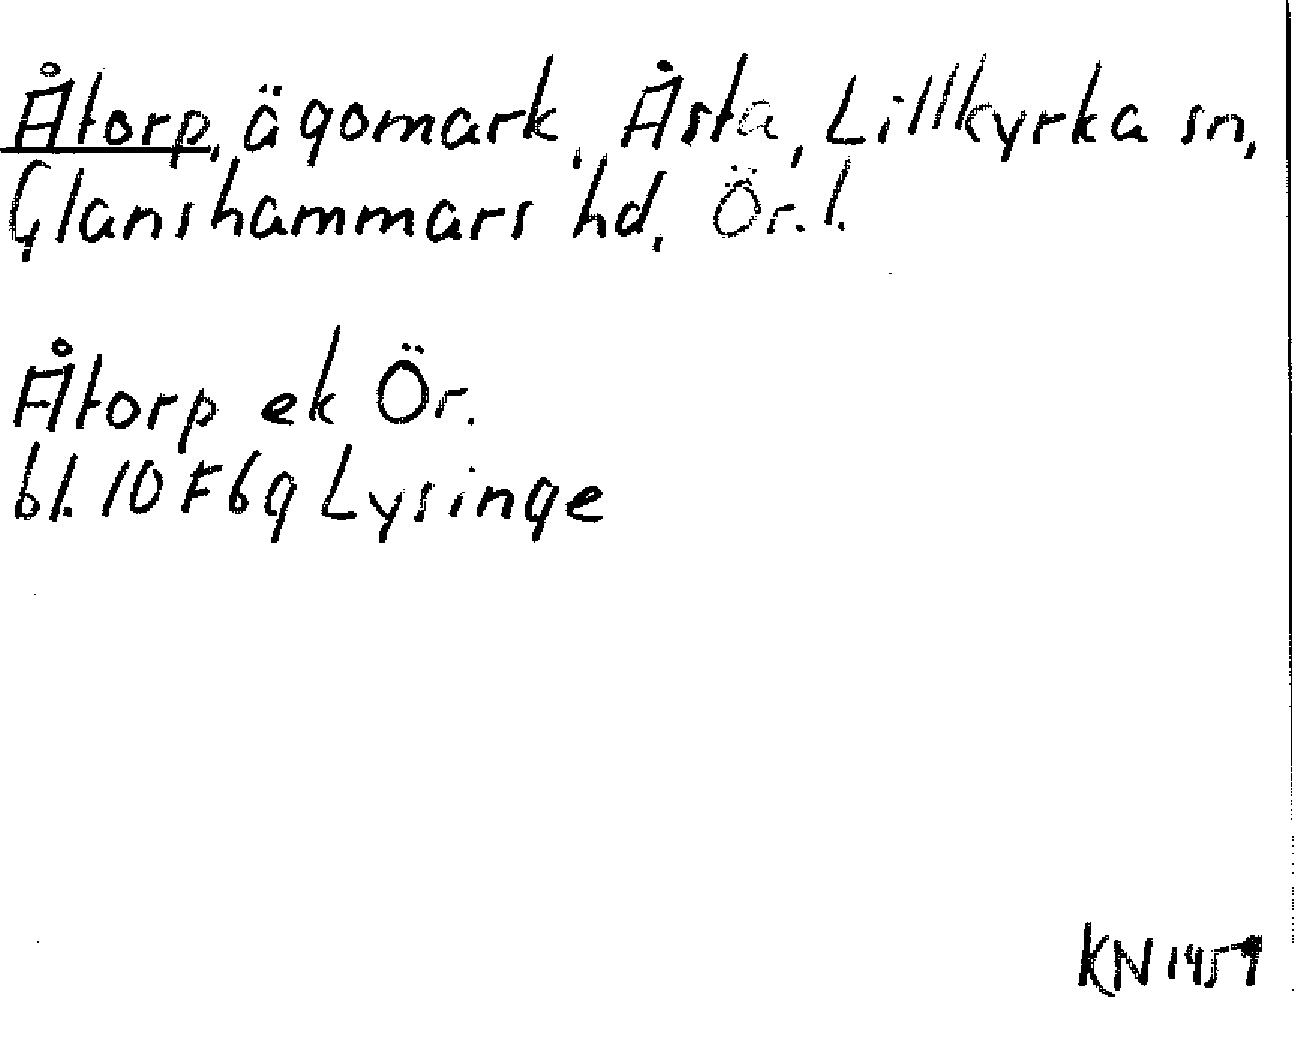 Åtorp, ägomark, Åsta, Lillkyrka sn,
Glanshammars hd, Ör. l.
Åtorp ek Ör.
bl. 10 F6g Lysinge